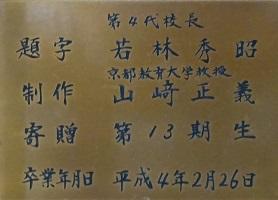 第4代校長
題字 若林秀昭
京都教育大学教授
制作 山﨑正義
寄贈 第13期生
卒業年月日 平成4年2月26日